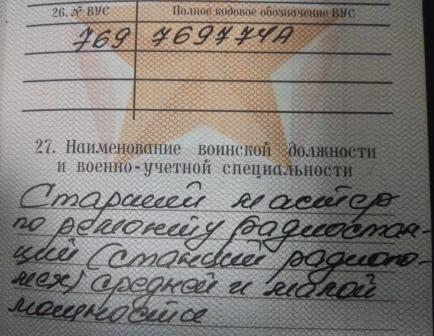 26. № ВУС Полное кодовое обозначение ВУС
769 769774А
27. Наименование воинской должности
и военно-учетной специальности
Старший мастер
по ремонту радиостан-
ций (станций радиопо-
мех) средней и малой
мощности